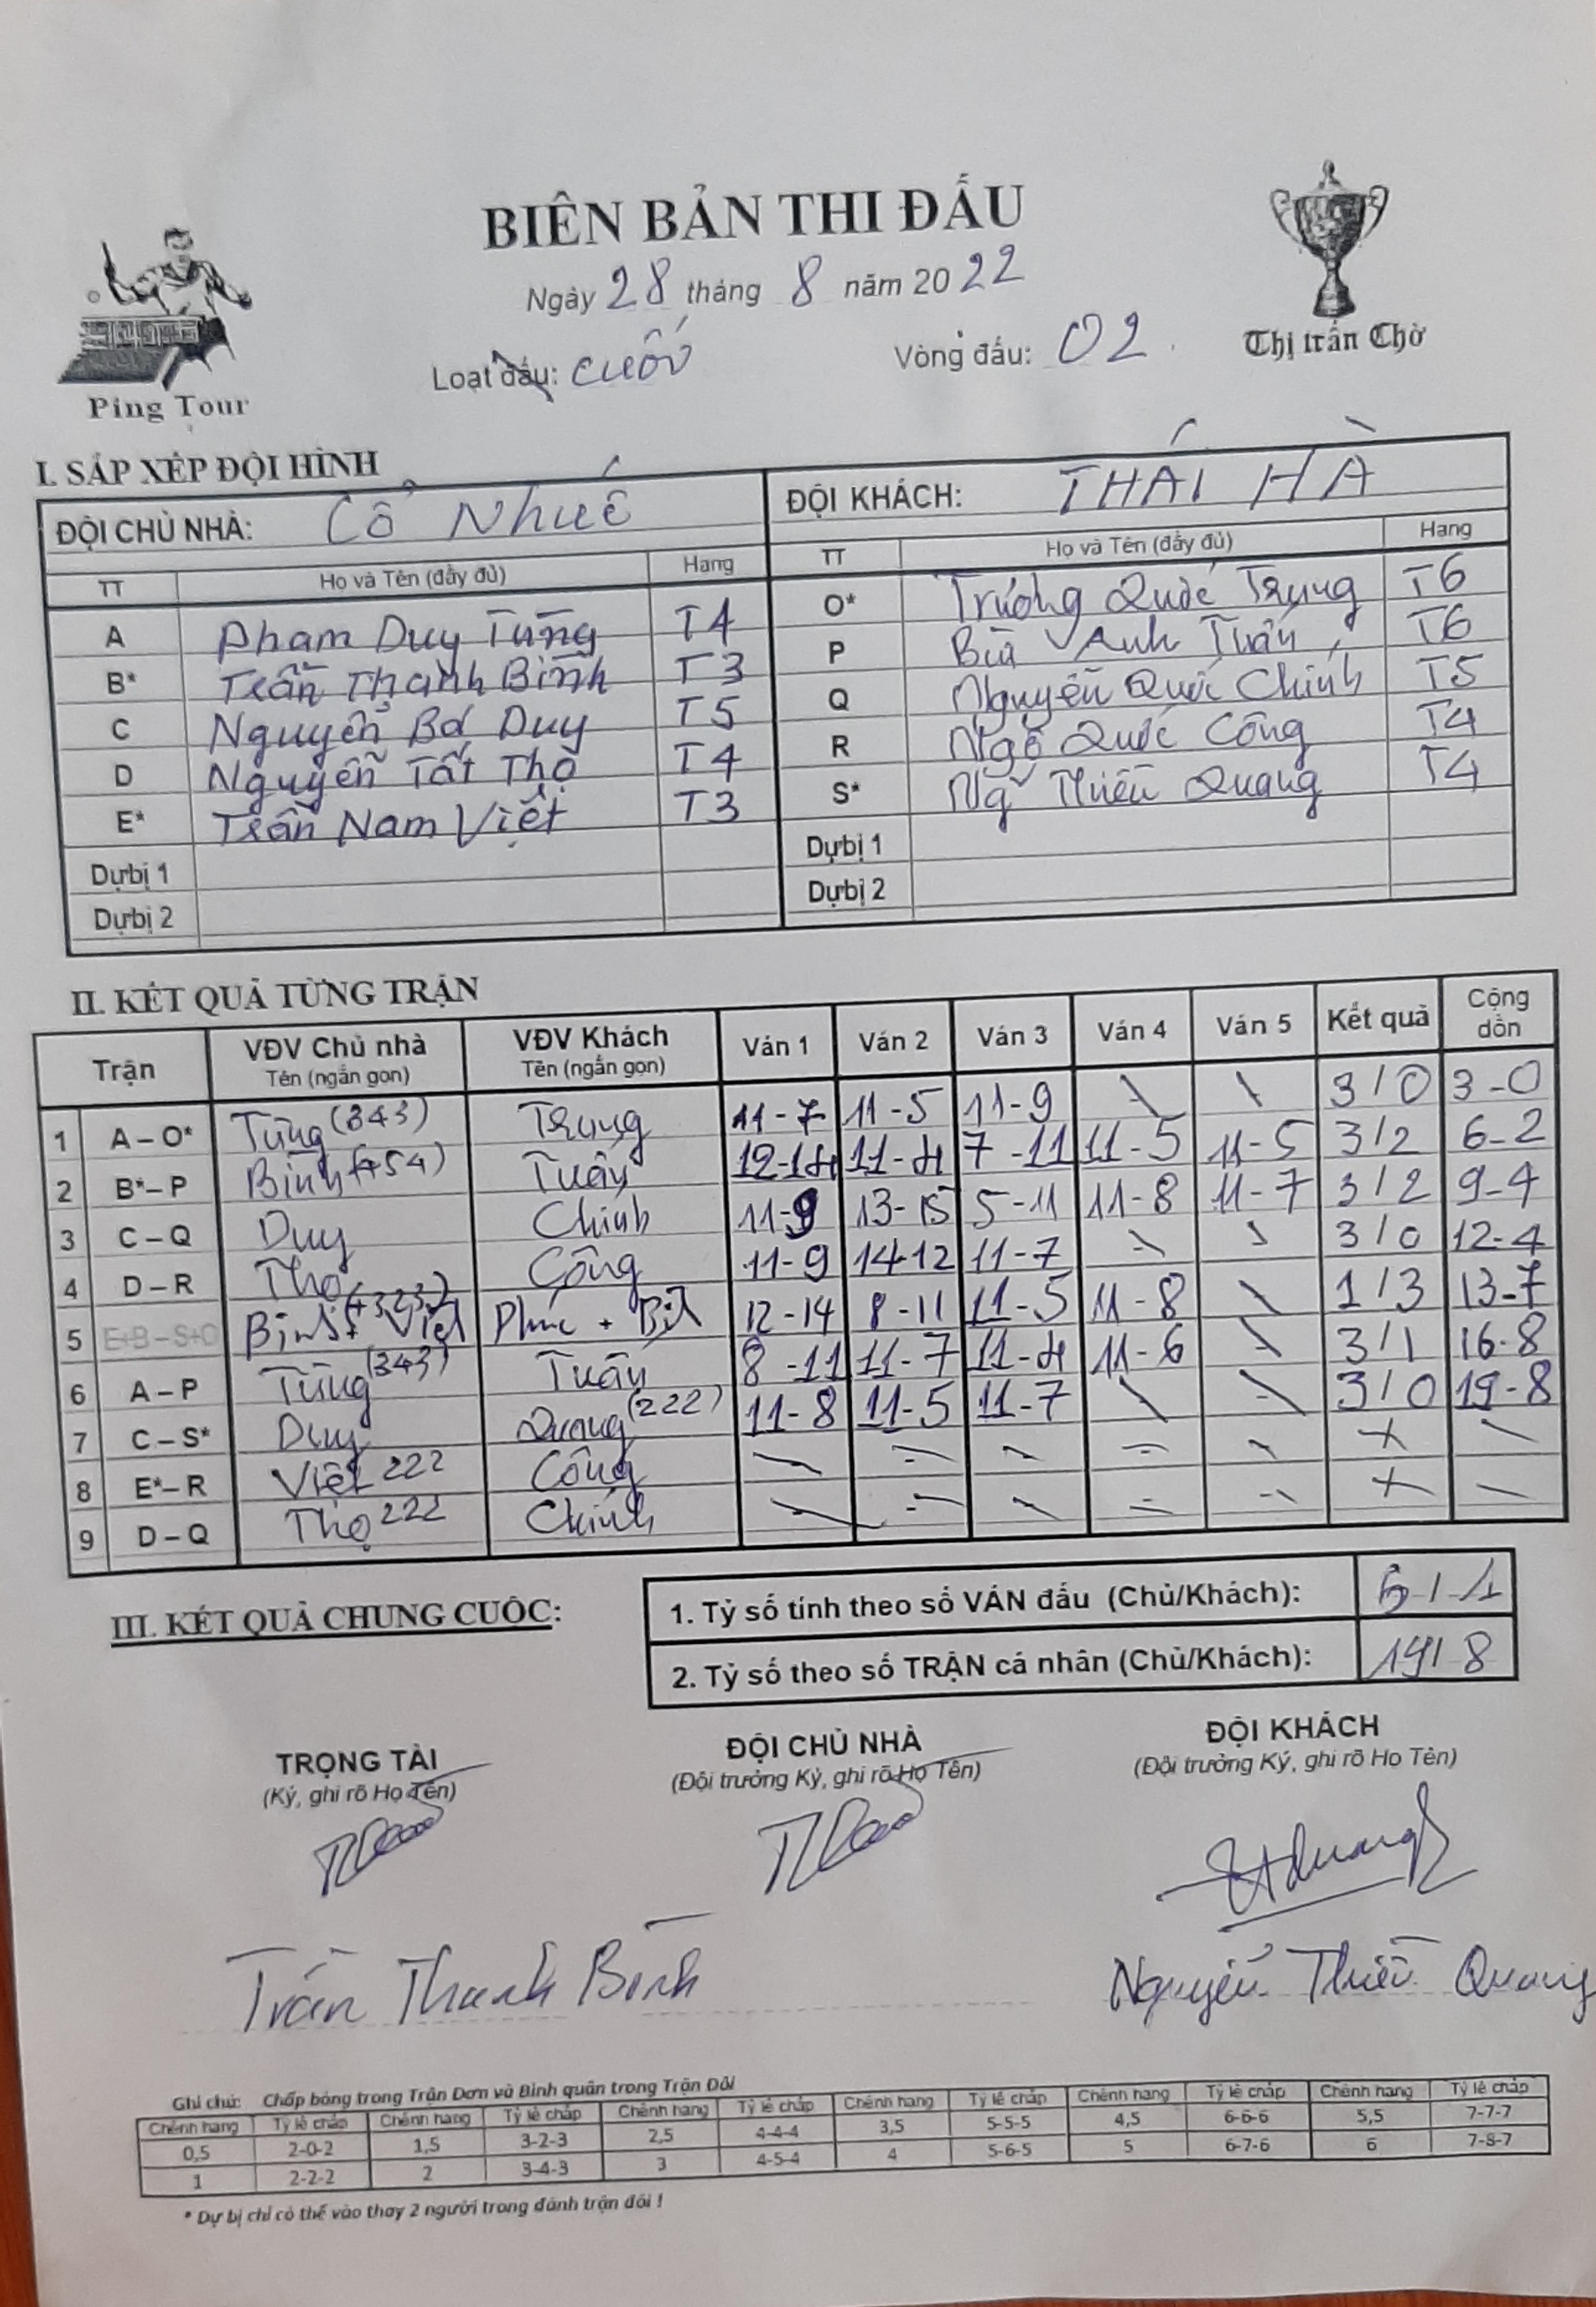 BIÊN BẢN THI ĐẤU
Ngày 28 tháng 8 năm 2022
Loạt đấu: cuối Vòng đấu: 02
Ping Tour
Thị trấn Chờ
I. SẮP XẾP ĐỘI HÌNH
ĐỘI CHỦ NHÀ: Cổ Nhuế ĐỘI KHÁCH: THÁI HÀ
TT Họ và Tên (đầy đủ) Hạng TT Họ và Tên (đầy đủ) Hạng
A Phạm Duy Tùng T4 O* Trương Quốc Trung T6
B* Trần Thanh Bình T3 P Bùi Anh Tuấn T6
C Nguyễn Bá Duy T5 Q Nguyễn Quốc Chính T5
D Nguyễn Tất Thọ T4 R Ngô Quốc Công T4
E* Trần Nam Việt T3 S* Ng Thiều Quang T4
Dự bị 1 Dự bị 1
Dự bị 2 Dự bị 2
II. KẾT QUẢ TỪNG TRẬN
Trận VĐV Chủ nhà Tên (ngắn gọn) VĐV Khách Tên (ngắn gọn) Ván 1 Ván 2 Ván 3 Ván 4 Ván 5 Kết quả Cộng dồn
1 A – O* Tùng (343) Trung 11-7 11-5 11-9 \ \ 3/0 3-0
2 B* – P Bình (454) Tuấn 12-14 11-4 7-11 11-5 11-5 3/2 6-2
3 C – Q Duy Chính 11-9 13-15 5-11 11-8 11-7 3/2 9-4
4 D – R Thọ Công 11-9 14-12 11-7 \ \ 3/0 12-4
5 E+B – S+O Bình + Việt (+323) 12-14 8-11 11-5 11-8 \ 1/3 13-7
6 A – P Tùng (343) Tuấn 8-11 11-7 11-4 11-6 \ 3/1 16-8
7 C – S* Duy Quang (222) 11-8 11-5 11-7 \ \ 3/0 19-8
8 E* – R Việt 222 Công \ \ \ \ \ X \
9 D – Q Thọ 222 Chính \ \ \ \ \ X \
III. KẾT QUẢ CHUNG CUỘC:
1. Tỷ số tính theo số VÁN đấu (Chủ/Khách): 6/1
2. Tỷ số theo số TRẬN cá nhân (Chủ/Khách): 19/8
TRỌNG TÀI ĐỘI CHỦ NHÀ ĐỘI KHÁCH
(Ký, ghi rõ Họ Tên) (Đội trưởng Ký, ghi rõ Họ Tên) (Đội trưởng Ký, ghi rõ Họ Tên)
Trần Thanh Bình Nguyễn Thiều Quang
Ghi chú: Chấp bóng trong Trận Đơn và Bình quân trong Trận Đôi
Chênh hạng Tỷ lệ chấp Chênh hạng Tỷ lệ chấp Chênh hạng Tỷ lệ chấp Chênh hạng Tỷ lệ chấp Chênh hạng Tỷ lệ chấp Chênh hạng Tỷ lệ chấp
0,5 2-0-2 1,5 3-2-3 2,5 4-4-4 3,5 5-5-5 4,5 6-6-6 5,5 7-7-7
1 2-2-2 2 3-4-3 3 4-5-4 4 5-6-5 5 6-7-6 6 7-8-7
* Dự bị chỉ có thể vào thay 2 người trong đánh trận đôi !